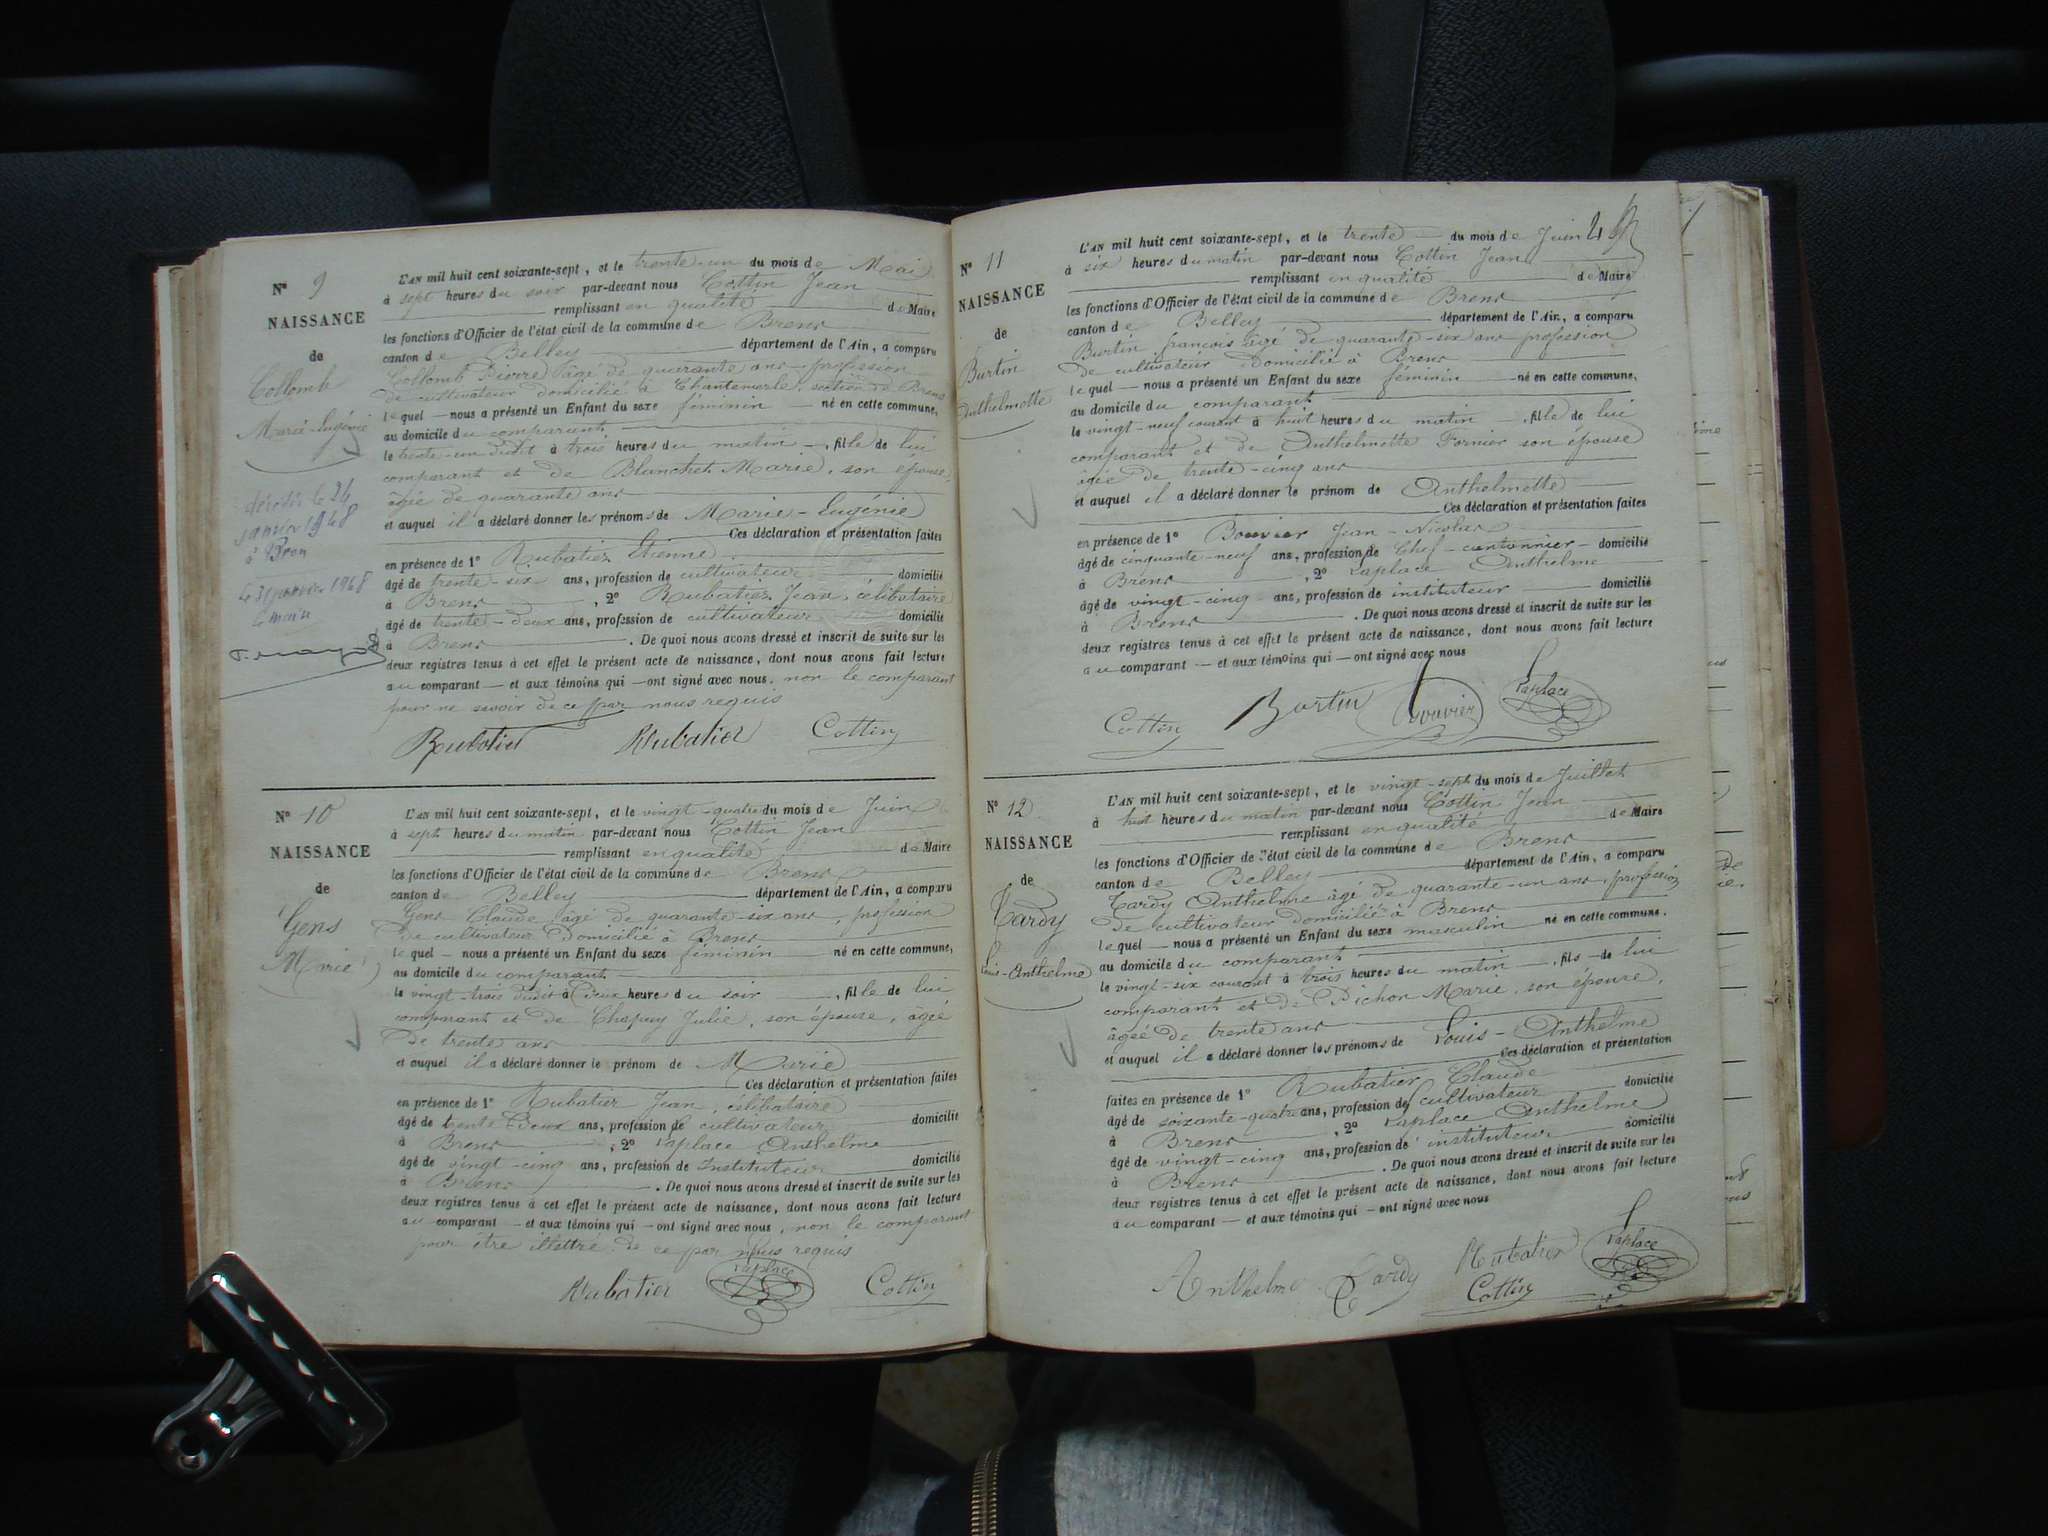 N° 9
NAISSANCE
de
Collomb
Marie-Eugénie
décédée le 26
janvier 1948
à Bron
le 31 janvier 1948
le maire
L'AN mil huit cent soixante-sept, et le trente-un du mois de Mai
à sept heures du soir par-devant nous Cottin Jean
remplissant en qualité de Maire
les fonctions d'Officier de l'état civil de la commune de Brens
canton de Belley département de l'Ain, a comparu
Collomb Pierre âgé de quarante ans, profession
de cultivateur domicilié à Chantemerle, section de Brens
lequel nous a présenté un Enfant du sexe féminin né en cette commune,
au domicile du comparant
le trente-un dudit à trois heures du matin, fille de lui
comparant et de Blanchet Marie, son épouse,
âgée de quarante ans
et auquel il a déclaré donner les prénoms de Marie-Eugénie
Ces déclaration et présentation faites
en présence de 1° Rubatier Etienne
âgé de trente-six ans, profession de cultivateur domicilié
à Brens, 2° Rubatier Jean, célibataire
âgé de trente-deux ans, profession de cultivateur domicilié
à Brens. De quoi nous avons dressé et inscrit de suite sur les
deux registres tenus à cet effet le présent acte de naissance, dont nous avons fait lecture
au comparant et aux témoins qui ont signé avec nous, non le comparant
pour ne savoir de ce par nous requis
Rubatier Rubatier Cottin
N° 10
NAISSANCE
de
Gens
Marie
L'AN mil huit cent soixante-sept, et le vingt-quatre du mois de Juin
à sept heures du matin par-devant nous Cottin Jean
remplissant en qualité de Maire
les fonctions d'Officier de l'état civil de la commune de Brens
canton de Belley département de l'Ain, a comparu
Gens Claude âgé de quarante-six ans, profession
de cultivateur domicilié à Brens
lequel nous a présenté un Enfant du sexe féminin né en cette commune,
au domicile du comparant
le vingt-trois dudit à deux heures du soir, fille de lui
comparant et de Chapuy Julie, son épouse, âgée
de trente ans
et auquel il a déclaré donner le prénom de Marie
Ces déclaration et présentation faites
en présence de 1° Rubatier Jean, célibataire
âgé de trente deux ans, profession de cultivateur domicilié
à Brens, 2° Laplace Anthelme
âgé de vingt-cinq ans, profession de Instituteur domicilié
à Brens. De quoi nous avons dressé et inscrit de suite sur les
deux registres tenus à cet effet le présent acte de naissance, dont nous avons fait lecture
au comparant et aux témoins qui ont signé avec nous, non le comparant
pour être illettré de ce par nous requis
Rubatier Laplace Cottin
N° 11
NAISSANCE
de
Burtin
Anthelmette
L'AN mil huit cent soixante-sept, et le trente du mois de Juin
à six heures du matin par-devant nous Cottin Jean
remplissant en qualité de Maire
les fonctions d'Officier de l'état civil de la commune de Brens
canton de Belley département de l'Ain, a comparu
Burtin françois âgé de quarante-six ans profession
de cultivateur domicilié à Brens
lequel nous a présenté un Enfant du sexe féminin né en cette commune,
au domicile du comparant
le vingt-neuf courant à huit heures du matin, fille de lui
comparant et de Anthelmette Fornier son épouse
âgée de trente-cinq ans
et auquel il a déclaré donner le prénom de Anthelmette
Ces déclaration et présentation faites
en présence de 1° Bouvier Jean-Nicolas
âgé de cinquante-neuf ans, profession de Chef-cantonnier domicilié
à Brens, 2° Laplace Anthelme
âgé de vingt-cinq ans, profession de instituteur domicilié
à Brens. De quoi nous avons dressé et inscrit de suite sur les
deux registres tenus à cet effet le présent acte de naissance, dont nous avons fait lecture
au comparant et aux témoins qui ont signé avec nous
Cottin Burtin Bouvier Laplace
N° 12
NAISSANCE
de
Tardy
Louis-Anthelme
L'AN mil huit cent soixante-sept, et le vingt-sept du mois de Juillet
à huit heures du matin par-devant nous Cottin Jean
remplissant en qualité de Maire
les fonctions d'Officier de l'état civil de la commune de Brens
canton de Belley département de l'Ain, a comparu
Tardy Anthelme âgé de quarante-un ans, profession
de cultivateur domicilié à Brens
lequel nous a présenté un Enfant du sexe masculin né en cette commune,
au domicile du comparant
le vingt-six courant à trois heures du matin, fils de lui
comparant et de Pichon Marie, son épouse,
âgée de trente ans
et auquel il a déclaré donner les prénoms de Louis-Anthelme
Ces déclaration et présentation
faites en présence de 1° Rubatier Claude
âgé de soixante-quatre ans, profession de cultivateur domicilié
à Brens, 2° Laplace Anthelme
âgé de vingt-cinq ans, profession de instituteur domicilié
à Brens. De quoi nous avons dressé et inscrit de suite sur les
deux registres tenus à cet effet le présent acte de naissance, dont nous avons fait lecture
au comparant et aux témoins qui ont signé avec nous
Anthelme Tardy Rubatier Laplace
Cottin